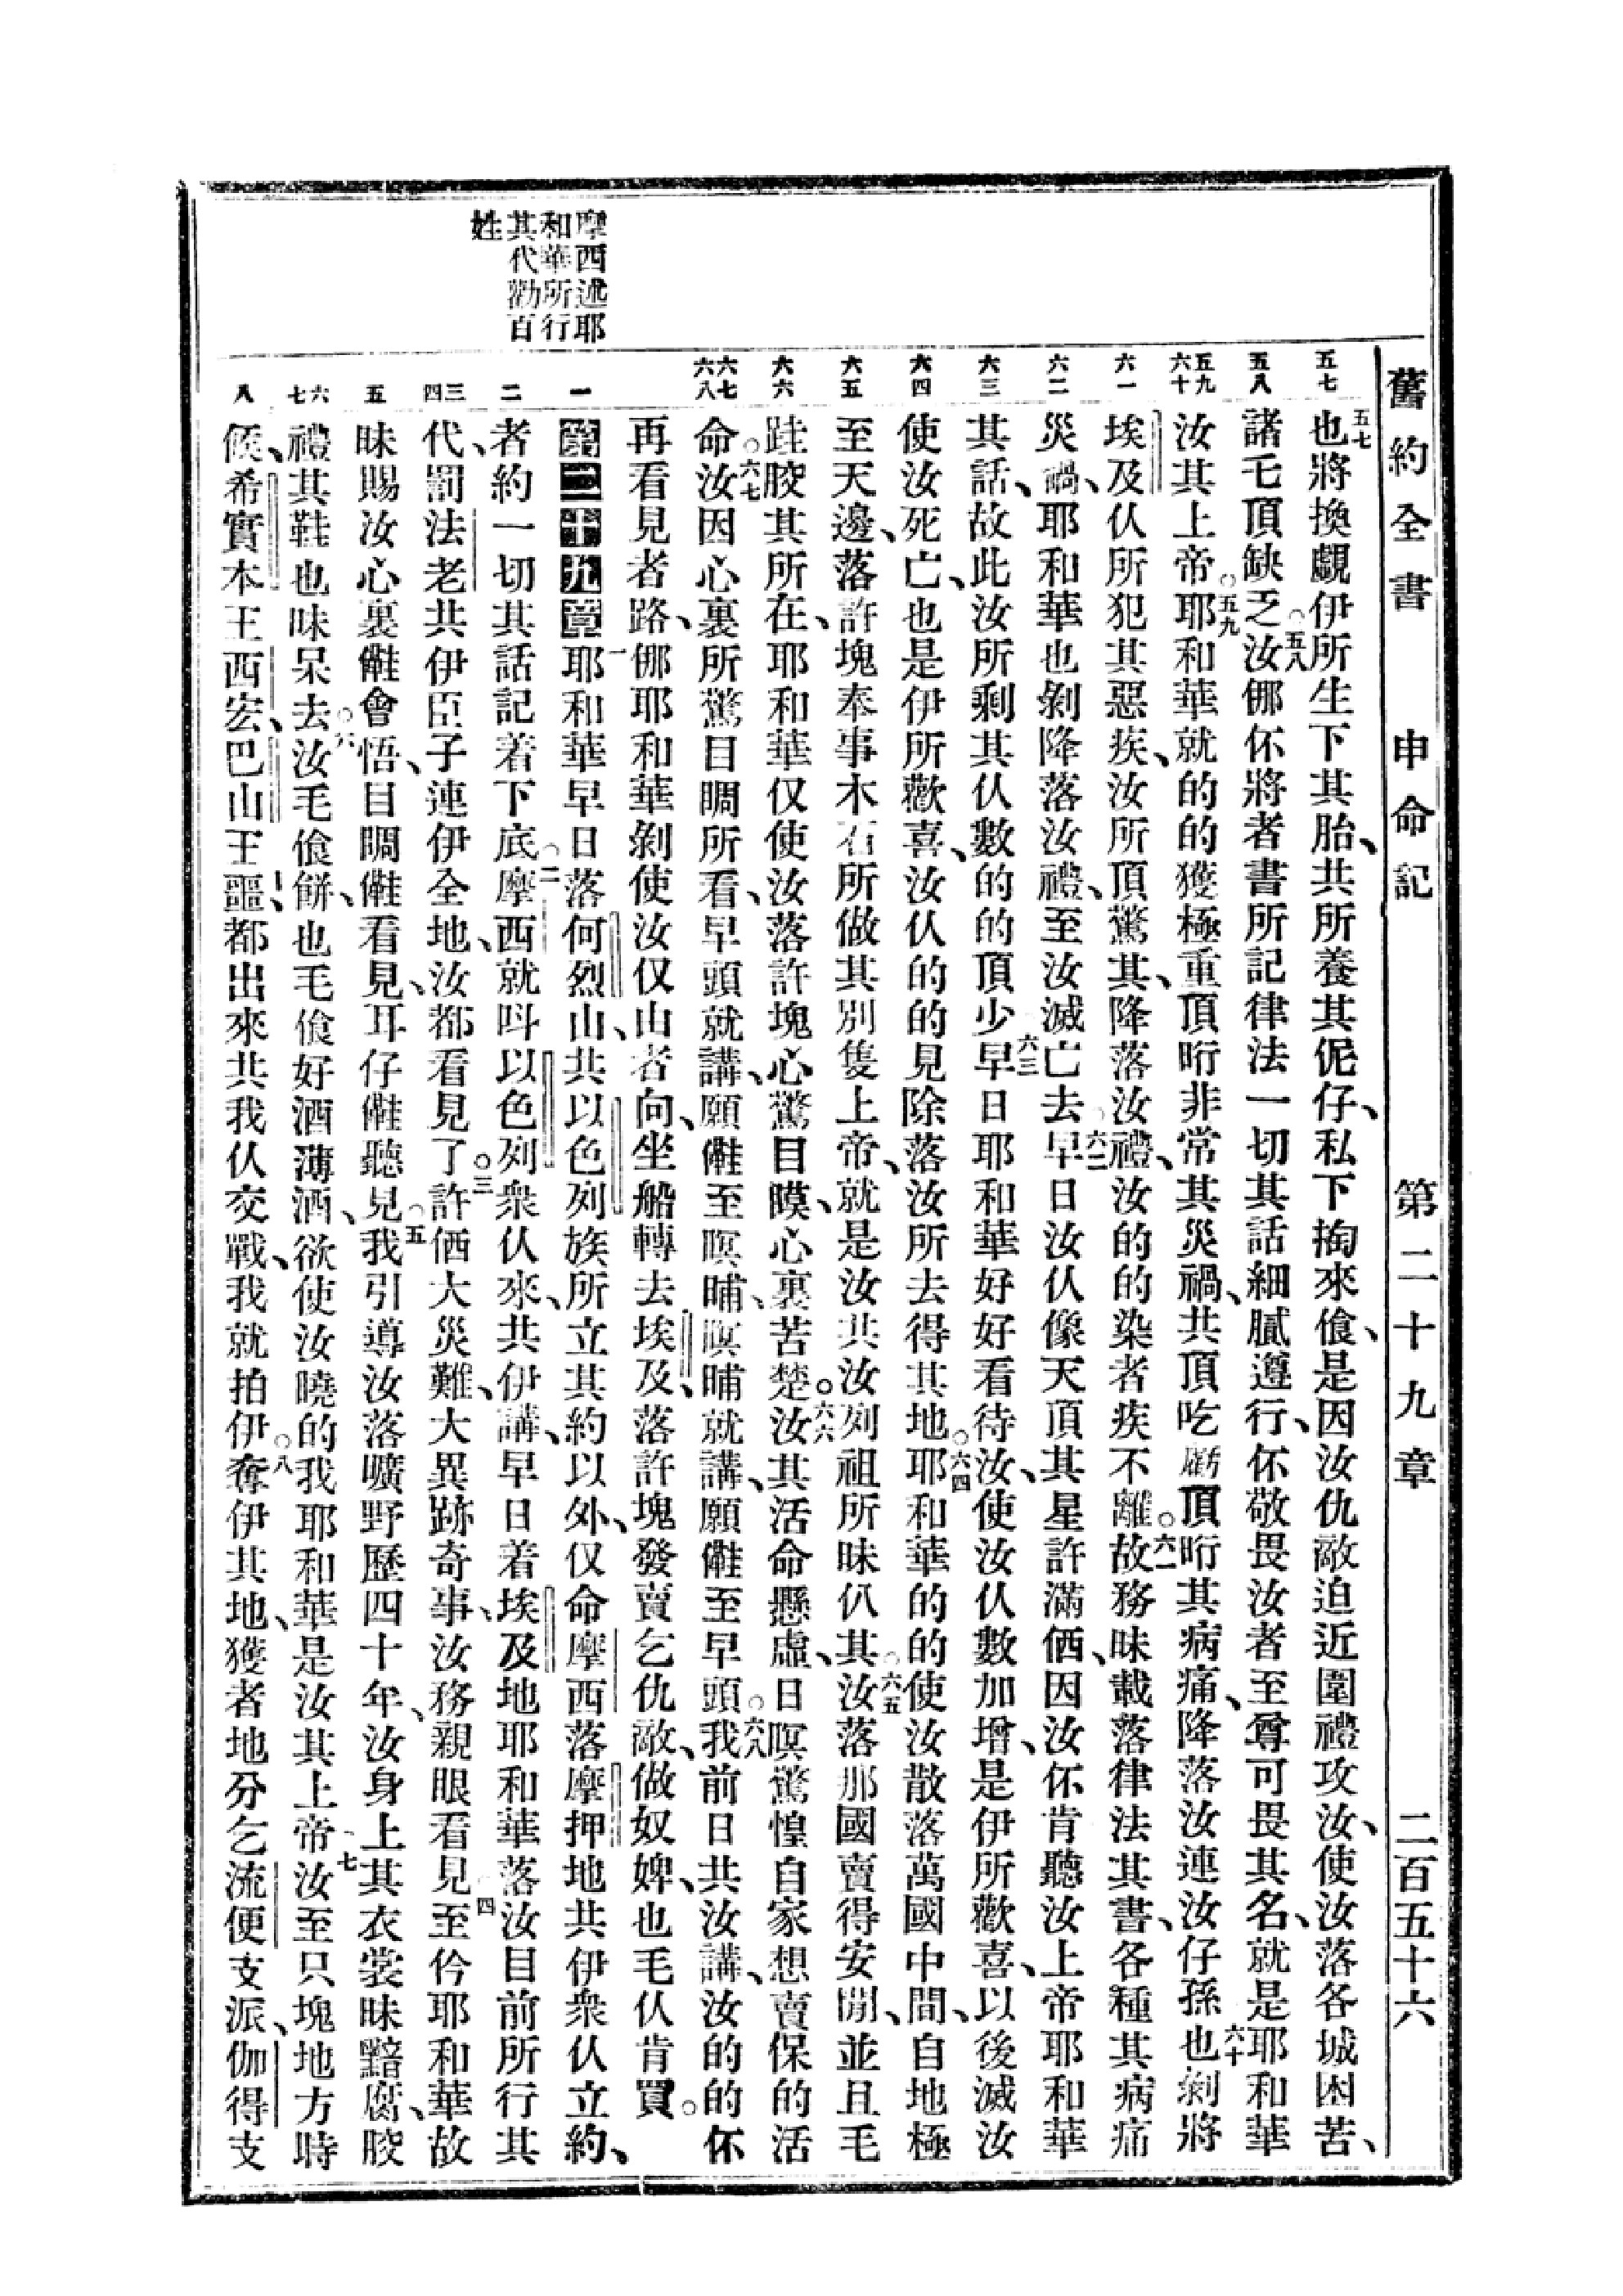 舊約全書 申命記 第二十九章 二百五十六
摩西述耶
和華所行
其代勸百
姓
五七
五八
五九
六十
六一
六二
六三
六四
六五
六六
六七
六八
一
二
三
四
五
六
七
八
五七也將換覷伊所生下其胎、共所養其伲仔、私下掏來飡、是因汝仇敵迫近圍禮攻汝、使汝落各城困苦、
諸乇頂缺乏。五八汝㑚伓將者書所記律法一切其話細膩遵行、伓敬畏汝者至尊可畏其名、就是耶和華
汝其上帝。五九耶和華就的的獲極重頂𥋇非常其災禍、共頂吃虧頂𥋇其病痛、降落汝連汝仔孫。六十也剝將
埃及仈所犯其惡疾、汝所頂驚其、降落汝禮、汝的的染者疾不離。六一故務昧載落律法其書、各種其病痛
災禍、耶和華也剝降落汝禮、至汝滅亡去。六二早日汝仈像天頂其星許滿㑚、因汝伓肯聽汝上帝耶和華
其話、故此汝所剩其仈數的的頂少。六三早日耶和華好好看待汝、使汝仈數加增、是伊所歡喜、以後滅汝
使汝死亡、也是伊所歡喜、汝仈的的見除落汝所去得其地。六四耶和華的的使汝散落萬國中間、自地極
至天邊、落許塊奉事木石所做其別隻上帝、就是汝共汝列祖所昧仈其。六五汝落那國賣得安閒、並且毛
跬骹其所在、耶和華仅使汝落許塊心驚目瞙、心裏苦楚。六六汝其活命懸虛、日暝驚惶自家想賣保的活
命。六七汝因心裏所驚目睭所看、早頭就講、願儺至暝晡、暝晡就講、願儺至早頭。六八我前日共汝講、汝的的伓
再看見者路、㑚耶和華剝使汝仅由者向、坐船轉去埃及、落許塊發賣乞仇敵、做奴婢、也毛仈肯買。
第二十九章 一耶和華早日落何烈山、共以色列族所立其約以外、仅命摩西落摩押地共伊衆仈立約、
者約一切其話記着下底。二摩西就呌以色列衆仈來、共伊講、早日着埃及地耶和華落汝目前所行其
代、罰法老共伊臣子連伊全地、汝都看見了。三許㑚大災難、大異跡奇事、汝務親眼看見。四至仱耶和華故
昧賜汝心裏儺會悟、目睭儺看見、耳仔儺聽見。五我引導汝落曠野歷四十年、汝身上其衣裳昧黯腐、骹
禮其鞋也昧呆去。六汝毛飡餅、也毛飡好酒薄酒、欲使汝曉的我耶和華是汝其上帝。七汝至只塊地方時
候、希實本王西宏、巴山王噩、都出來共我仈交戰、我就拍伊。八奪伊其地、獲者地分乞流便支派、伽得支